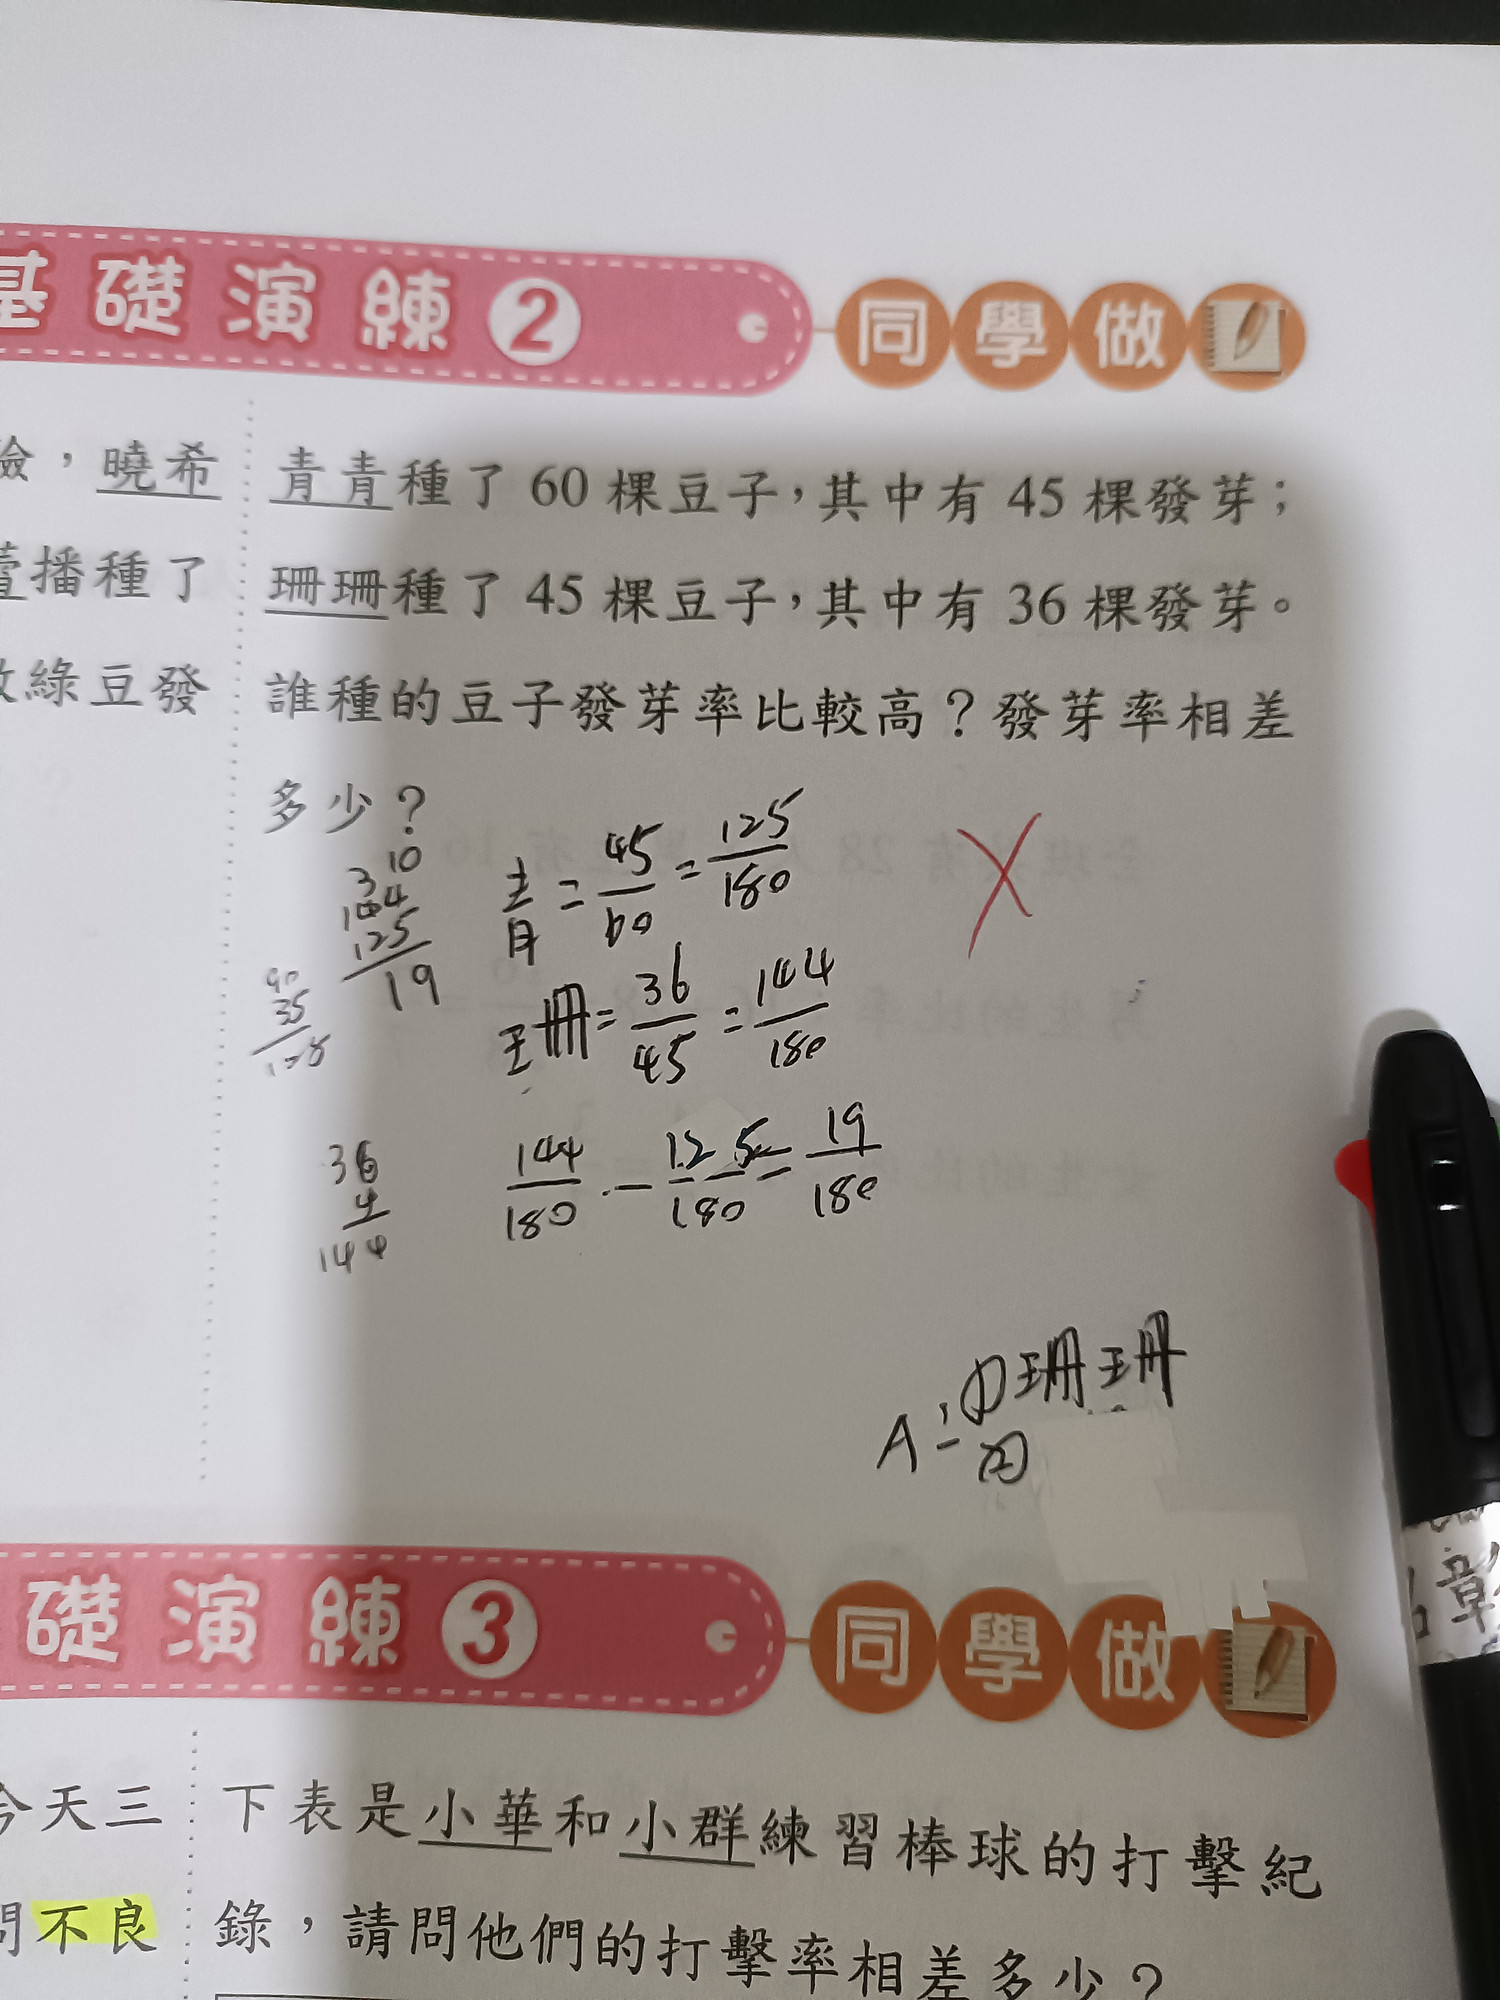 基礎演練2 同學做
險，曉希
播種了
綠豆發
青青種了 60 棵豆子，其中有 45 棵發芽；
珊珊種了 45 棵豆子，其中有 36 棵發芽。
誰種的豆子發芽率比較高？發芽率相差
多少？
10
3
144
125
19
90
35
125
青 = 45/60 = 125/180
珊 = 36/45 = 144/180
36
4
144
144/180 - 125/180 = 19/180
A：(1)珊珊
(2)
礎演練3 同學做
今天三
問不良
下表是小華和小群練習棒球的打擊紀
錄，請問他們的打擊率相差多少？